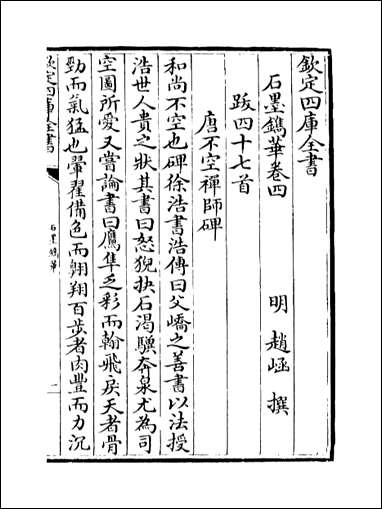 欽定四庫全書
石墨鐫華卷四
明 趙崡 撰
跋四十七首
唐不空禪師碑
和尚不空也碑徐浩書浩傳曰父嶠之善書以法授
浩世人貴之狀其書曰怒猊抉石渴驥奔泉尤為司
空圖所愛又嘗論書曰鷹隼乏彩而翰飛戾天者骨
勁而氣猛也翬翟備色而翱翔百步者肉豐而力沉
欽定四庫全書
石墨鐫華